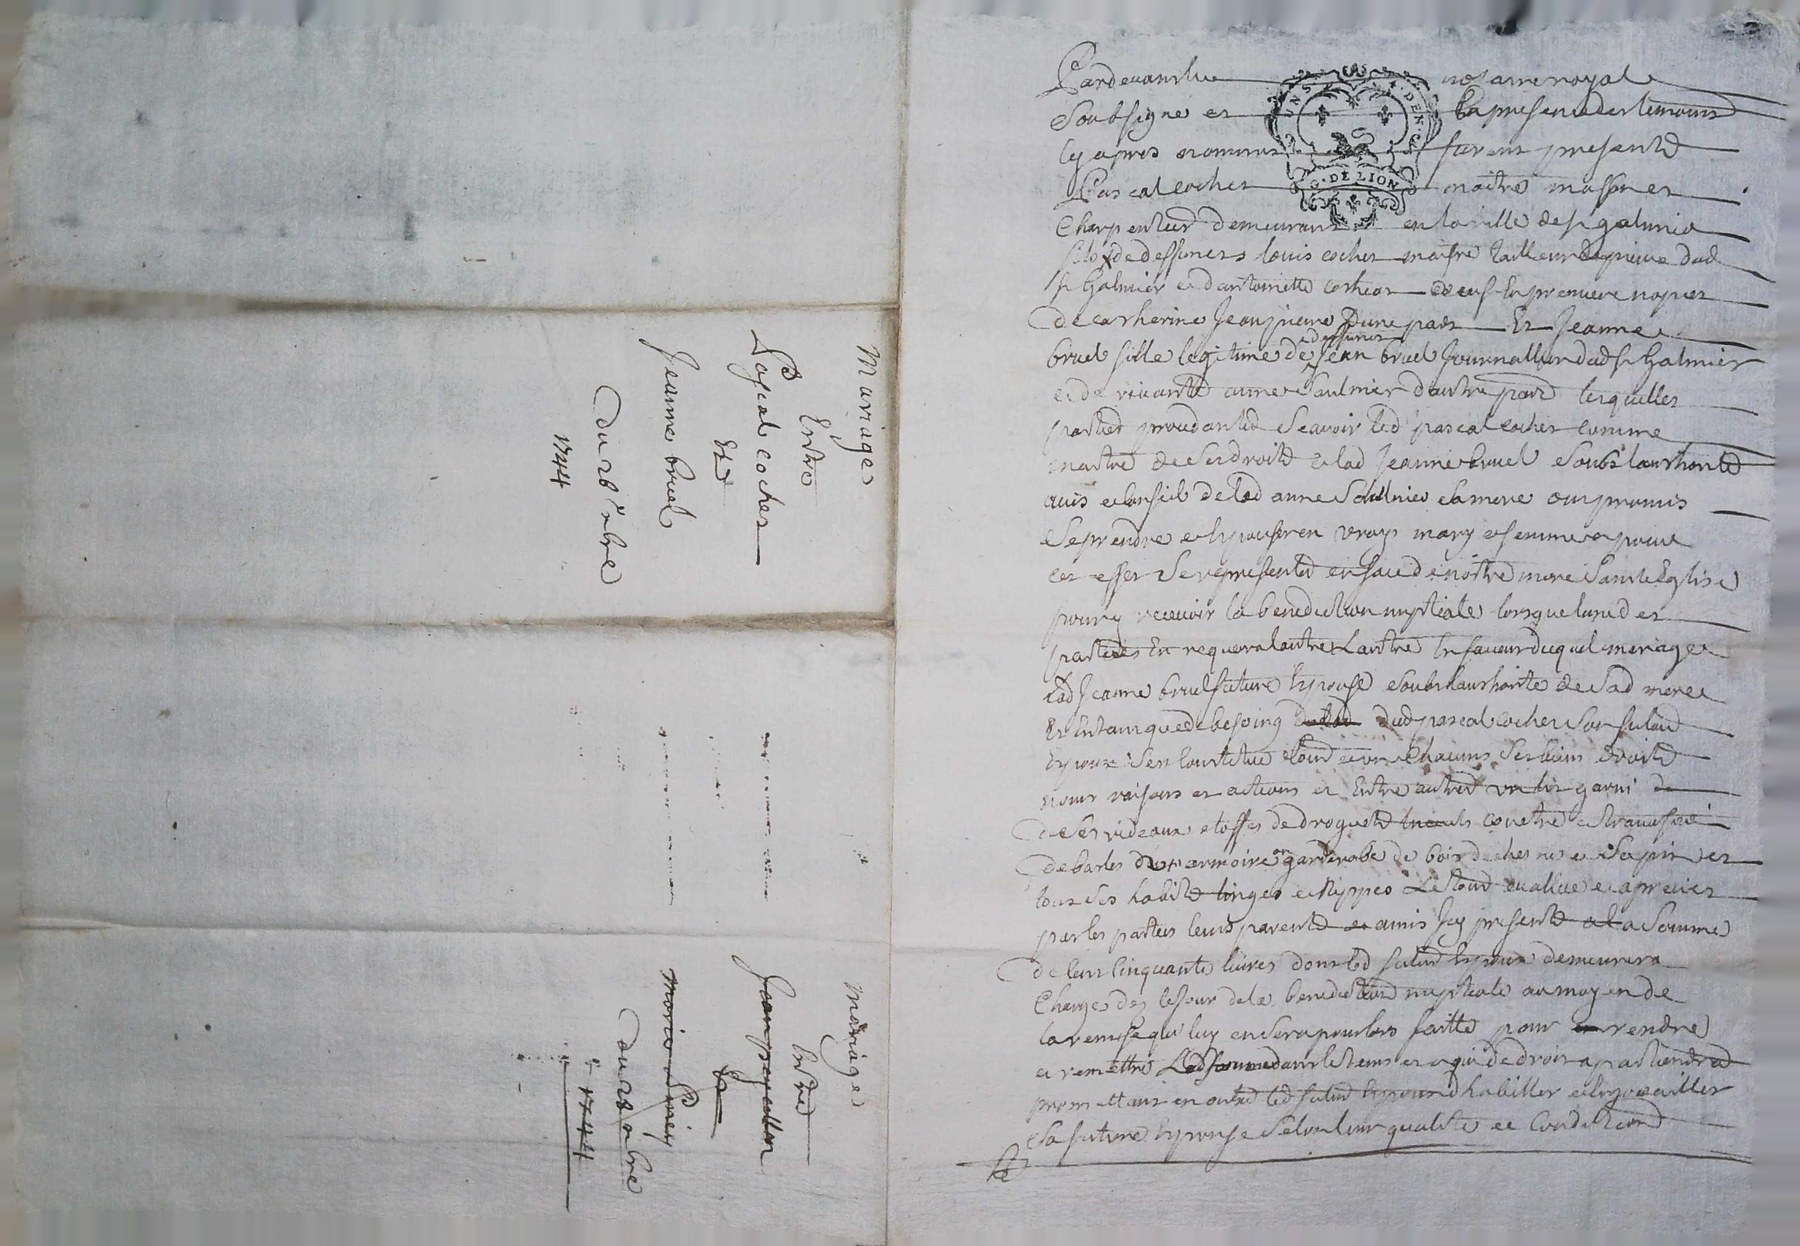 Pardevant le notaire royal
Soubsigne et En presence des temoins
cy apres nommes furent presents
Pascal cocher maitre masson et
Charpentier demeurant en la ville de st galmier
fils de deffuncts louis cocher maistre tailleur dud
st Galmier et dantoinette veuf En premiere nopces
de catherine Jeanpierre Dune part Et Jeanne
bruel fille legitime de deffunct Jean bruel Journallier dud st Galmier
et de vivante anne Saulnier dautre part lesquelles
parties procedantes Scavoir led pascal cocher comme
maitre de ses droits et lad Jeanne bruel Soubs lauthorité
avis et conseil de lad anne Saulnier sa mere ont promis
Se prendre et Epouser en vrays mary et femme et pour
cet effet Se representer en face de nostre mere Sainte Eglise
pour y recevoir la benediction nuptiale lorsque lune des
parties En requerera lautre En faveur duquel mariage
lad Jeanne bruel future Epouse Soubs lauthorite de Sad mere
Et En tant que de besoing dud pascal cocher Son futur
Epoux Sen Constitue tous et un Chacuns Ses biens droits
noms raisons et actions et Entre autres un lit garni de
de rideaux etoffes de droguet couetre et traversier
de bales armoire ou garderobe de bois de chesne et Sapin et
tous Ses habits linges et Nippes Le tout evallué et apretié
par les parties leurs parents et amis Icy presents a la Somme
de Cent Cinquante livres dont led futur Epoux demeurera
Charge des le Jour de la benediction nuptiale au moyen de
la remise qui luy en sera pour lors faitte pour rendre
et remettre Lad Somme dans le tems et a qui de droit apartiendra
promettant en outre led futur Epoux dhabiller et Enjoailler
Sa future Epouse Selon leur qualité et Condition
Mariage
Entre
Pascal cocher
Et
Jeanne bruel
Du 28e 7bre
1744
Mariage
Entre
Et
1744
DE LION